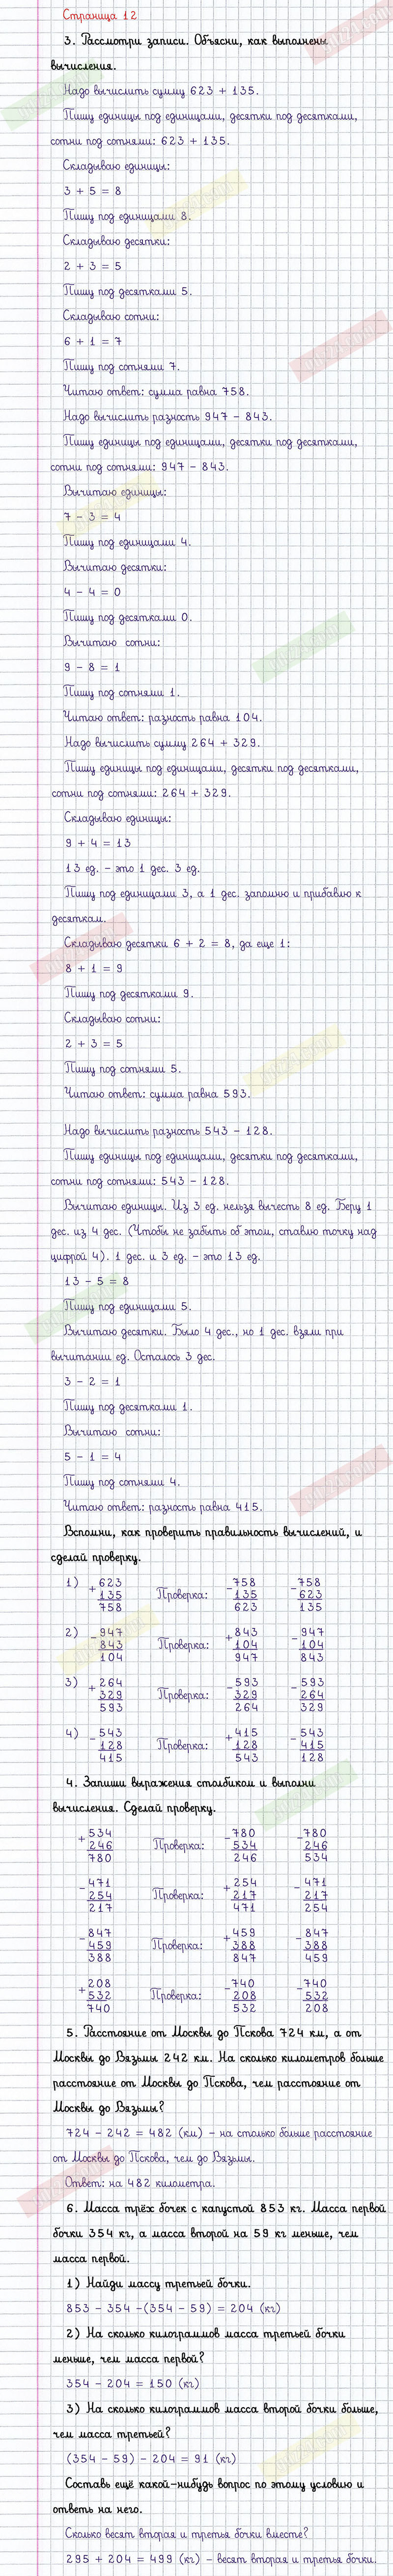 Страница 12
3. Рассмотри записи. Объясни, как выполнены
вычисления.
Надо вычислить сумму 623 + 135.
Пишу единицы под единицами, десятки под десятками,
сотни под сотнями: 623 + 135.
Складываю единицы:
3 + 5 = 8
Пишу под единицами 8.
Складываю десятки:
2 + 3 = 5
Пишу под десятками 5.
Складываю сотни:
6 + 1 = 7
Пишу под сотнями 7.
Читаю ответ: сумма равна 758.
Надо вычислить разность 947 - 843.
Пишу единицы под единицами, десятки под десятками,
сотни под сотнями: 947 - 843.
Вычитаю единицы:
7 - 3 = 4
Пишу под единицами 4.
Вычитаю десятки:
4 - 4 = 0
Пишу под десятками 0.
Вычитаю сотни:
9 - 8 = 1
Пишу под сотнями 1.
Читаю ответ: разность равна 104.
Надо вычислить сумму 264 + 329.
Пишу единицы под единицами, десятки под десятками,
сотни под сотнями: 264 + 329.
Складываю единицы:
9 + 4 = 13
13 ед. - это 1 дес. 3 ед.
Пишу под единицами 3, а 1 дес. запомню и прибавлю к
десяткам.
Складываю десятки 6 + 2 = 8, да еще 1:
8 + 1 = 9
Пишу под десятками 9.
Складываю сотни:
2 + 3 = 5
Пишу под сотнями 5.
Читаю ответ: сумма равна 593.
Надо вычислить разность 543 - 128.
Пишу единицы под единицами, десятки под десятками,
сотни под сотнями: 543 - 128.
Вычитаю единицы. Из 3 ед. нельзя вычесть 8 ед. Беру 1
дес. из 4 дес. (Чтобы не забыть об этом, ставлю точку над
цифрой 4). 1 дес. и 3 ед. - это 13 ед.
13 - 5 = 8
Пишу под единицами 5.
Вычитаю десятки. Было 4 дес., но 1 дес. взяли при
вычитании ед. Осталось 3 дес.
3 - 2 = 1
Пишу под десятками 1.
Вычитаю сотни:
5 - 1 = 4
Пишу под сотнями 4.
Читаю ответ: разность равна 415.
Вспомни, как проверить правильность вычислений, и
сделай проверку.
1) + 623 - 758 - 758
135 Проверка: 135 623
758 623 135
2) - 947 + 843 - 947
843 Проверка: 104 104
104 947 843
3) + 264 - 593 - 593
329 Проверка: 329 264
593 264 329
4) - 543 + 415 - 543
128 Проверка: 128 415
415 543 128
4. Запиши выражения столбиком и выполни
вычисления. Сделай проверку.
+ 534 - 780 - 780
246 Проверка: 534 246
780 246 534
- 471 + 254 - 471
254 Проверка: 217 217
217 471 254
- 847 + 459 - 847
459 Проверка: 388 388
388 847 459
+ 208 - 740 - 740
532 Проверка: 208 532
740 532 208
5. Расстояние от Москвы до Пскова 724 км, а от
Москвы до Вязьмы 242 км. На сколько километров больше
расстояние от Москвы до Пскова, чем расстояние от
Москвы до Вязьмы?
724 - 242 = 482 (км) - на столько больше расстояние
от Москвы до Пскова, чем до Вязьмы.
Ответ: на 482 километра.
6. Масса трёх бочек с капустой 853 кг. Масса первой
бочки 354 кг, а масса второй на 59 кг меньше, чем
масса первой.
1) Найди массу третьей бочки.
853 - 354 -(354 - 59) = 204 (кг)
2) На сколько килограммов масса третьей бочки
меньше, чем масса первой?
354 - 204 = 150 (кг)
3) На сколько килограммов масса второй бочки больше,
чем масса третьей?
(354 - 59) - 204 = 91 (кг)
Составь ещё какой-нибудь вопрос по этому условию и
ответь на него.
Сколько весят вторая и третья бочки вместе?
295 + 204 = 499 (кг) - весят вторая и третья бочки.